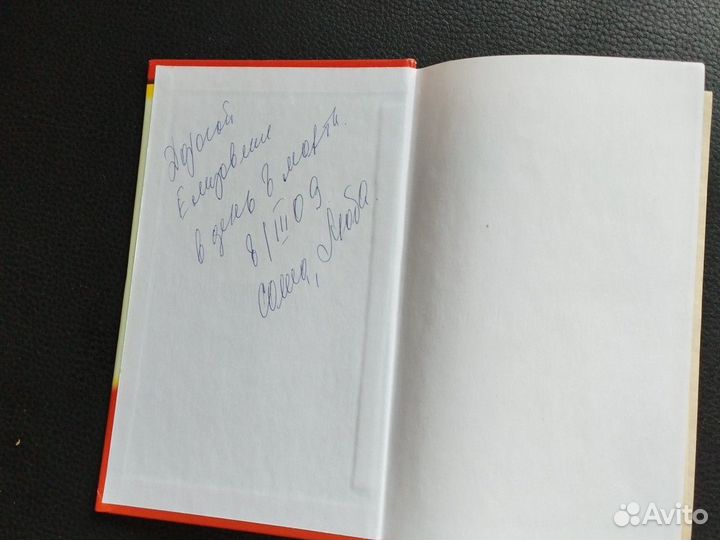 Дорогой
Елизовете
в день 8 марта.
8/III 09
Саша, Люба.
Avito